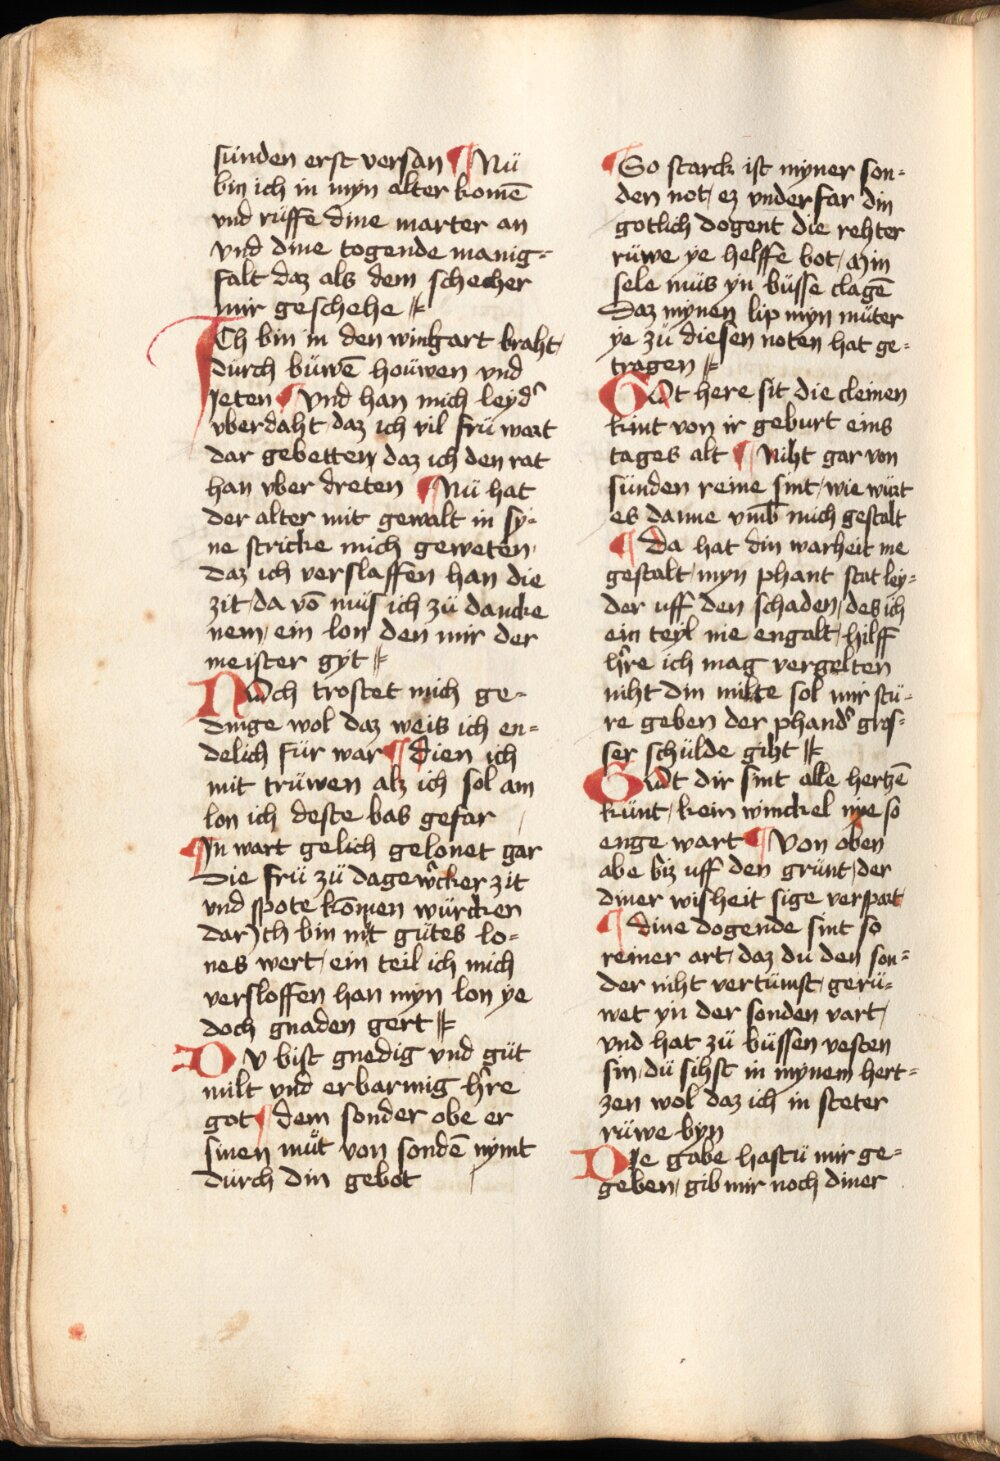 sünden erst versan ¶ Nü
bin ich in myn alter komē
vnd rüffe dine marter an
vnd dine togende manig=
falt daz als dem schecher
mir geschehe
Ich bin in den wingart braht /
dürch büwē hoüwen vnd
jeten ¶ vnd han mich leyd'
vberdaht daz ich vil frü wart
dar gebetten daz ich den rat
han vber dreten ¶ Nü hat
der alter mit gewalt in sy=
ne stricke mich geweten /
daz ich verslaffen han die
zit / da vō müs ich zü dancke
nem / ein lon den mir der
meister gyt
Noch trostet mich ge=
dinge wol daz weis ich en=
delich für war ¶ dien ich
mit trüwen alz ich sol am
lon ich deste bas gefar
¶ In wart gelich gelonet gar
die frü zü dage w'cker zit
vnd spote komen würcker
dar) ich bin nit gütes lo=
nes wert / ein teil ich mich
versloffen han myn lon ye
doch gnaden gert
Dv bist gnedig vnd güt
milt vnd erbarmig h're
got ¶ dem sonder obe er
sinen müt von sondē nymt
dürch din gebot
¶ So starck ist myner son=
den not / ez vnderfar din
gotlich dogent die rehter
rüwe ye helffe bot / Min
sele müs yn büsse clagē
Daz mynen lip myn müter
ye zü diesen noten hat ge=
tragen
Got here sit die cleinen
kint von ir geburt eins
tages alt ¶ Niht gar von
sünden reine sint / wie würt
es danne vmb mich gestalt
¶ Da hat din warheit me
gestalt / myn phant stat ley=
der uff den schaden / des ich
ein teyl nie engalt / hilff
h're ich mag vergelten
niht din milte sol mir stü=
re geben der phand' gros=
ser schülde giht
Got dir sint alle hertzē
künt / kein winckel nye so
enge wart ¶ Von oben
abe biz uff den grünt / der
diner wisheit sige verspart
¶ dine dogende sint so
reiner art / daz du den son=
der niht vertümst / gerü=
wet yn der sonden vart /
vnd hat zü büssen vesten
sin / dü sihst in mynem hert=
zen wol daz ich in steter
rüwe byn
Die gabe hastü mir ge=
geben / gib mir noch diner